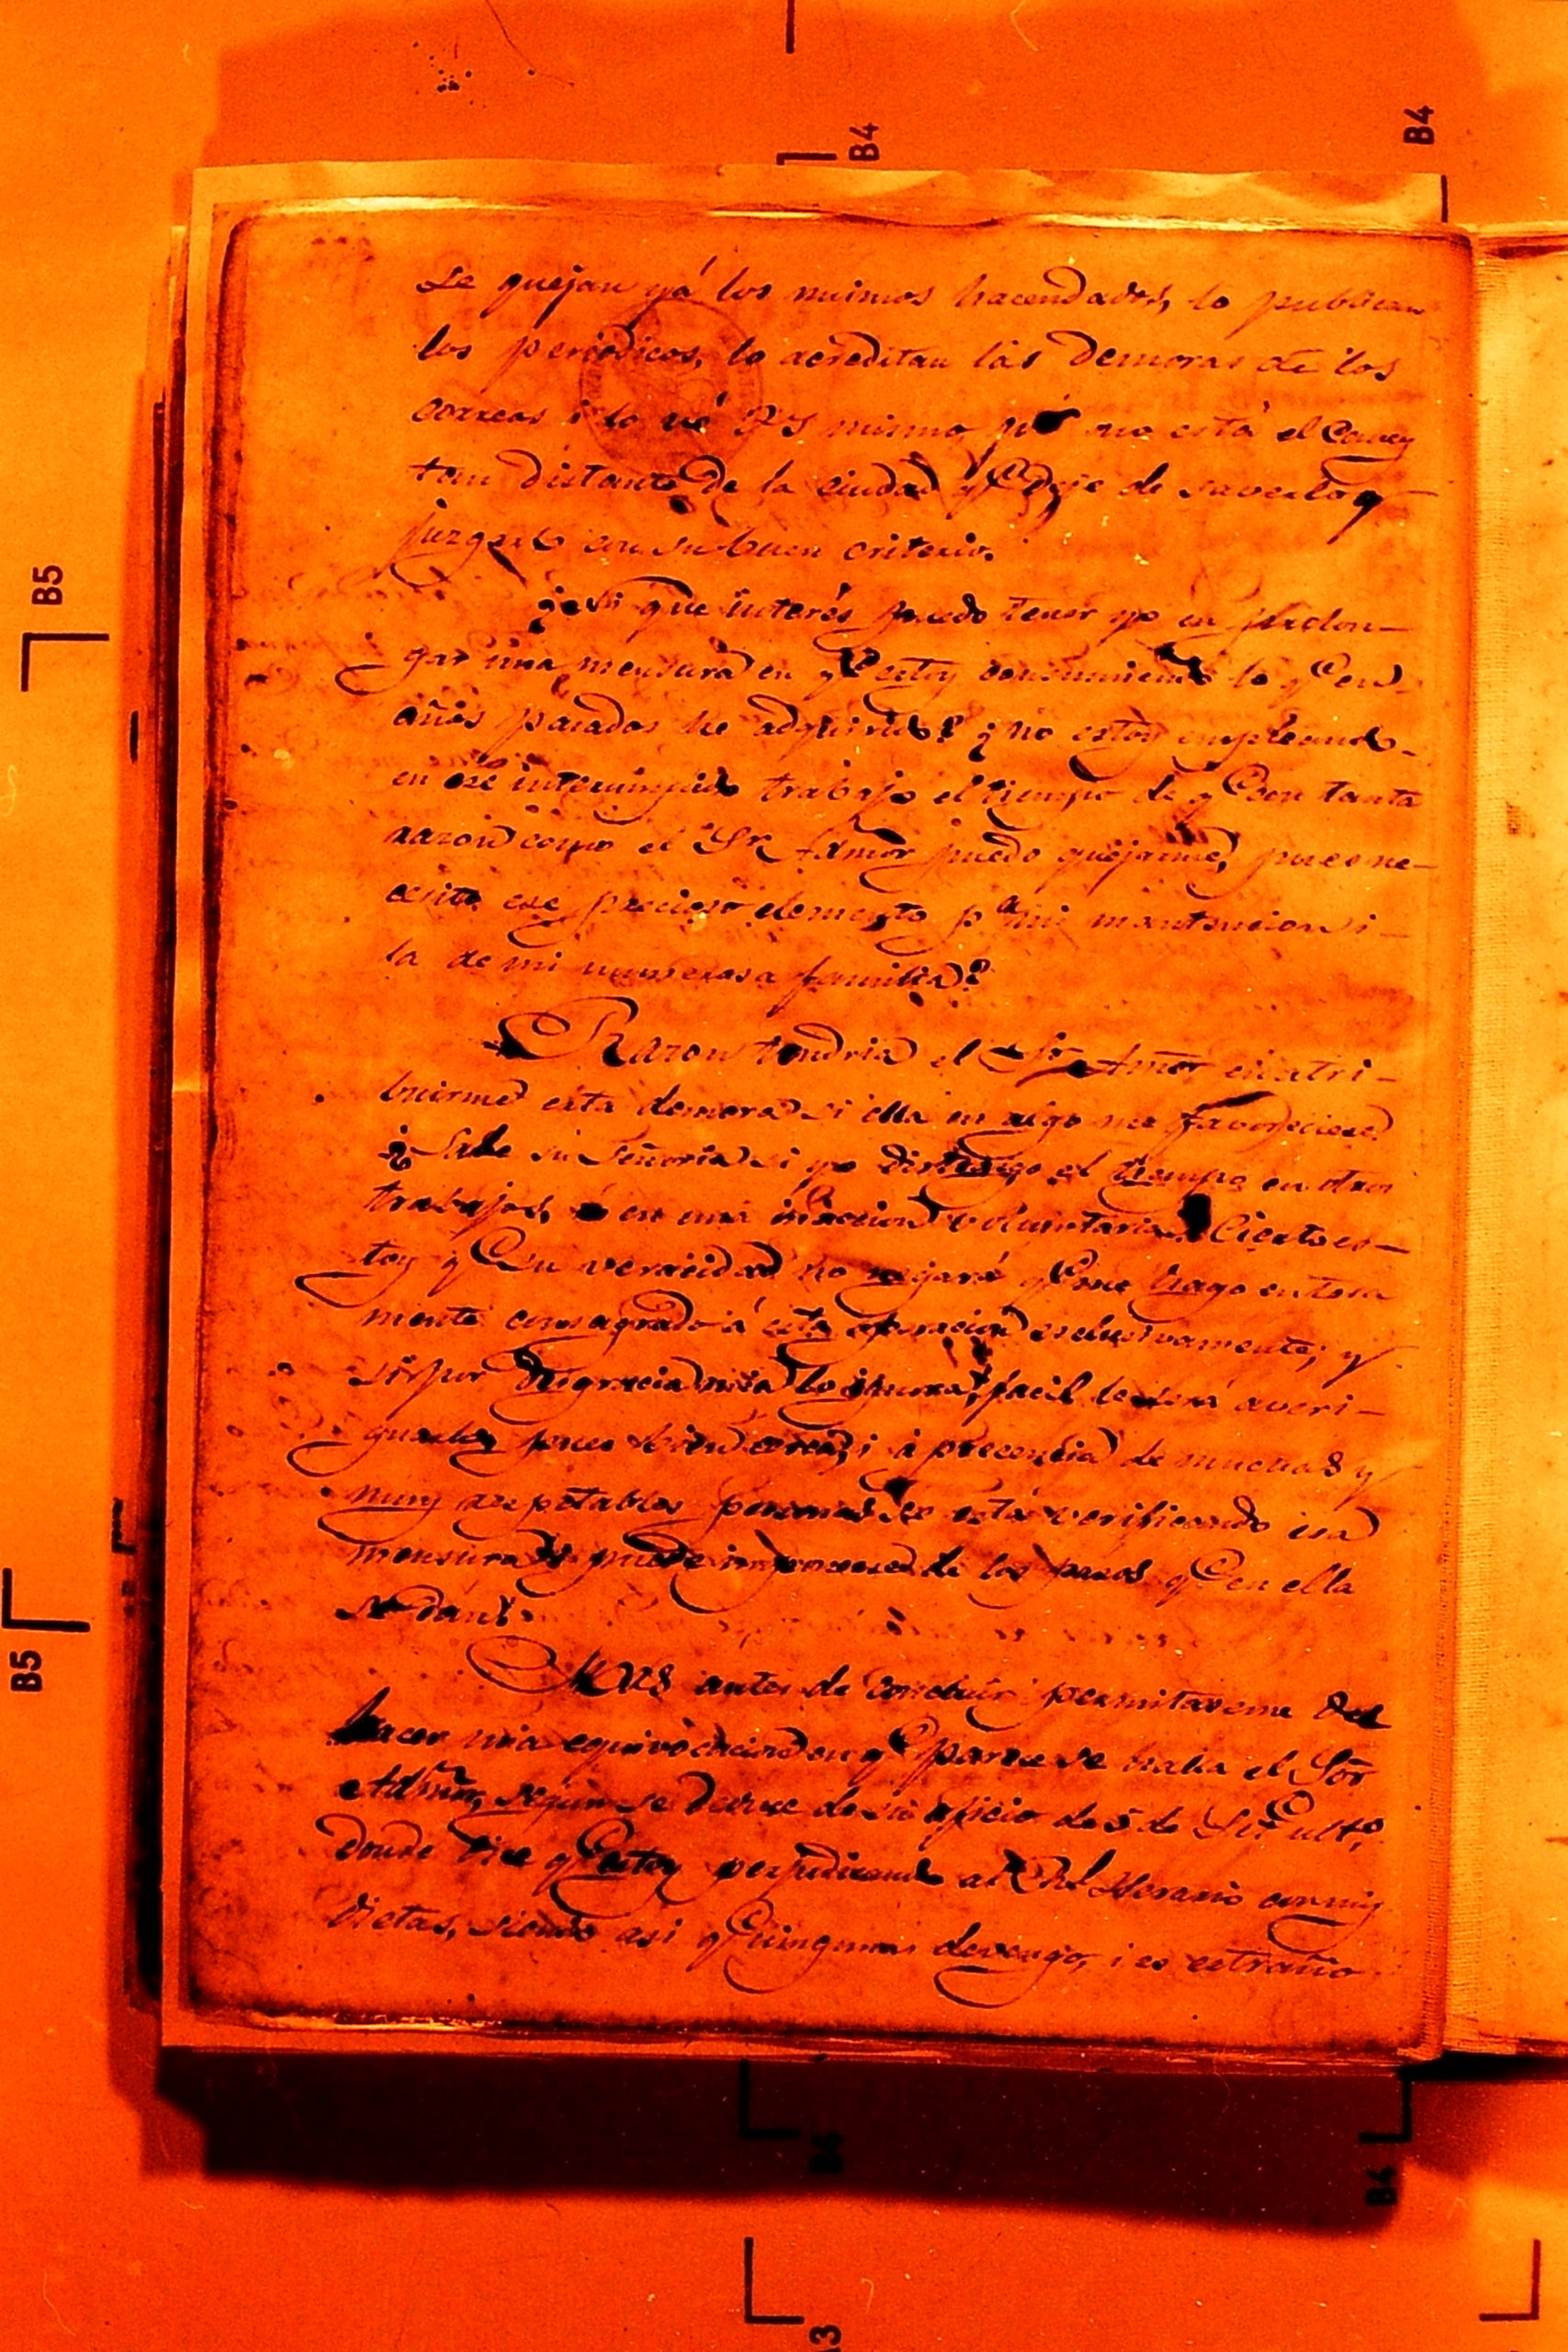 B4
B4
se quejan yá los mismos hacendados, lo publican
los periódicos, lo acreditan las demoras de los
correos i lo vé VS mismo, pues no está el Caney
tan distante de la ciudad q.e deje de saverlo y
juzgarlo con su buen criterio.
¿Si que interés puedo tener yo en prolon-
gar una mensura en q.e estoy consumiendo lo q.e en
años pasados he adquirido? ¿no estoy empleando
en ese trabajo el tiempo de q.e con tanta
razon como el Sr. Admor puedo quejarme, pues ne-
cesito ese precioso elemento p.a mi mantencion i
la de mi numerosa familia?
Razon tendria el Sr. Admor en atri-
buirme esta demora si ella en algo me favoreciese.
¿Sabe su Señoria si yo distraigo el tiempo en otros
trabajos, ó en una inaccion voluntaria? Cierto es-
toy q.e su veracidad no negará q.e me hago entera
mente consagrado á esta operacion esclusivamente; y
si por desgracia mia lo ignora, facil le será averi-
guarlo, pues bien cerca, i á precencia de muchas y
muy respetables personas se está verificando esa
mensura i puede imponerse de los pasos q.e en ella
se dán.
Mas antes de concluir permitaseme des
hacer una equivocacion en q.e parece se halla el Sor
Admor, segun se deduce de su oficio de 5 de Set.e ult.o
donde dice q.e estoy perjudicando al Rl. Herario con mis
dietas, siendo asi q.e ningunas devengo, i es estraño
B5
B5
B4
B4
B3